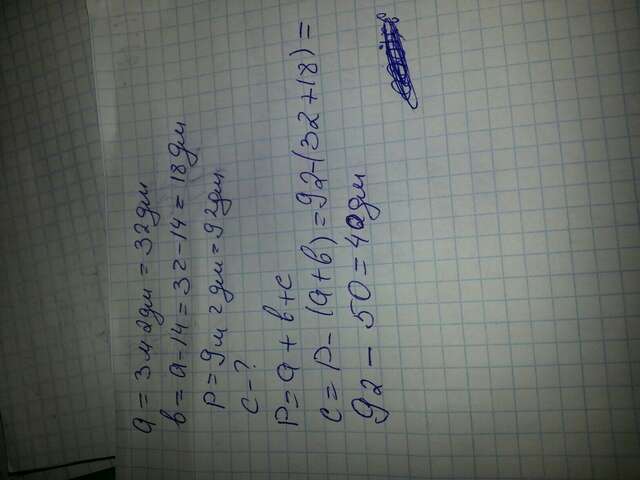 a = 3м 2дм = 32дм
в = а - 14 = 32 - 14 = 18дм
P = 9м 2дм = 92дм
c - ?
P = a + в + c
c = P - (a + в) = 92 - (32 + 18) =
92 - 50 = 42дм